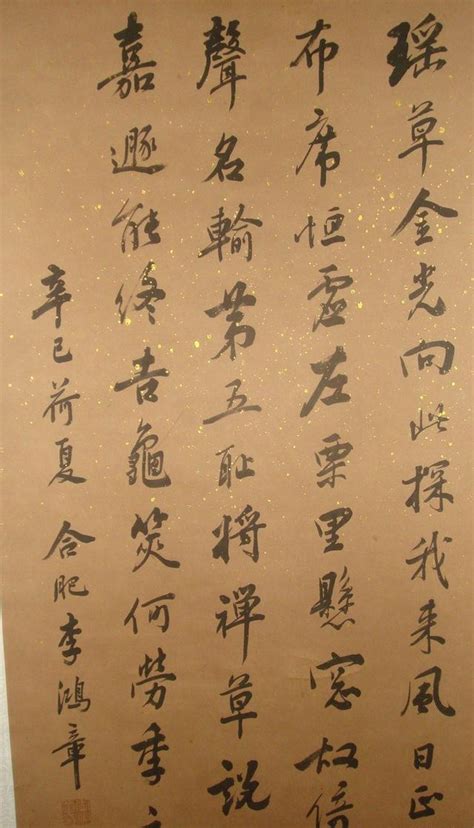 瑶草金光向此探我来風日正
布席恒虚左栗里懸窓故倍
聲名輸第五耻將禅草説
嘉遯能終吉龜筴何勞季
辛巳荷夏 合肥李鴻章